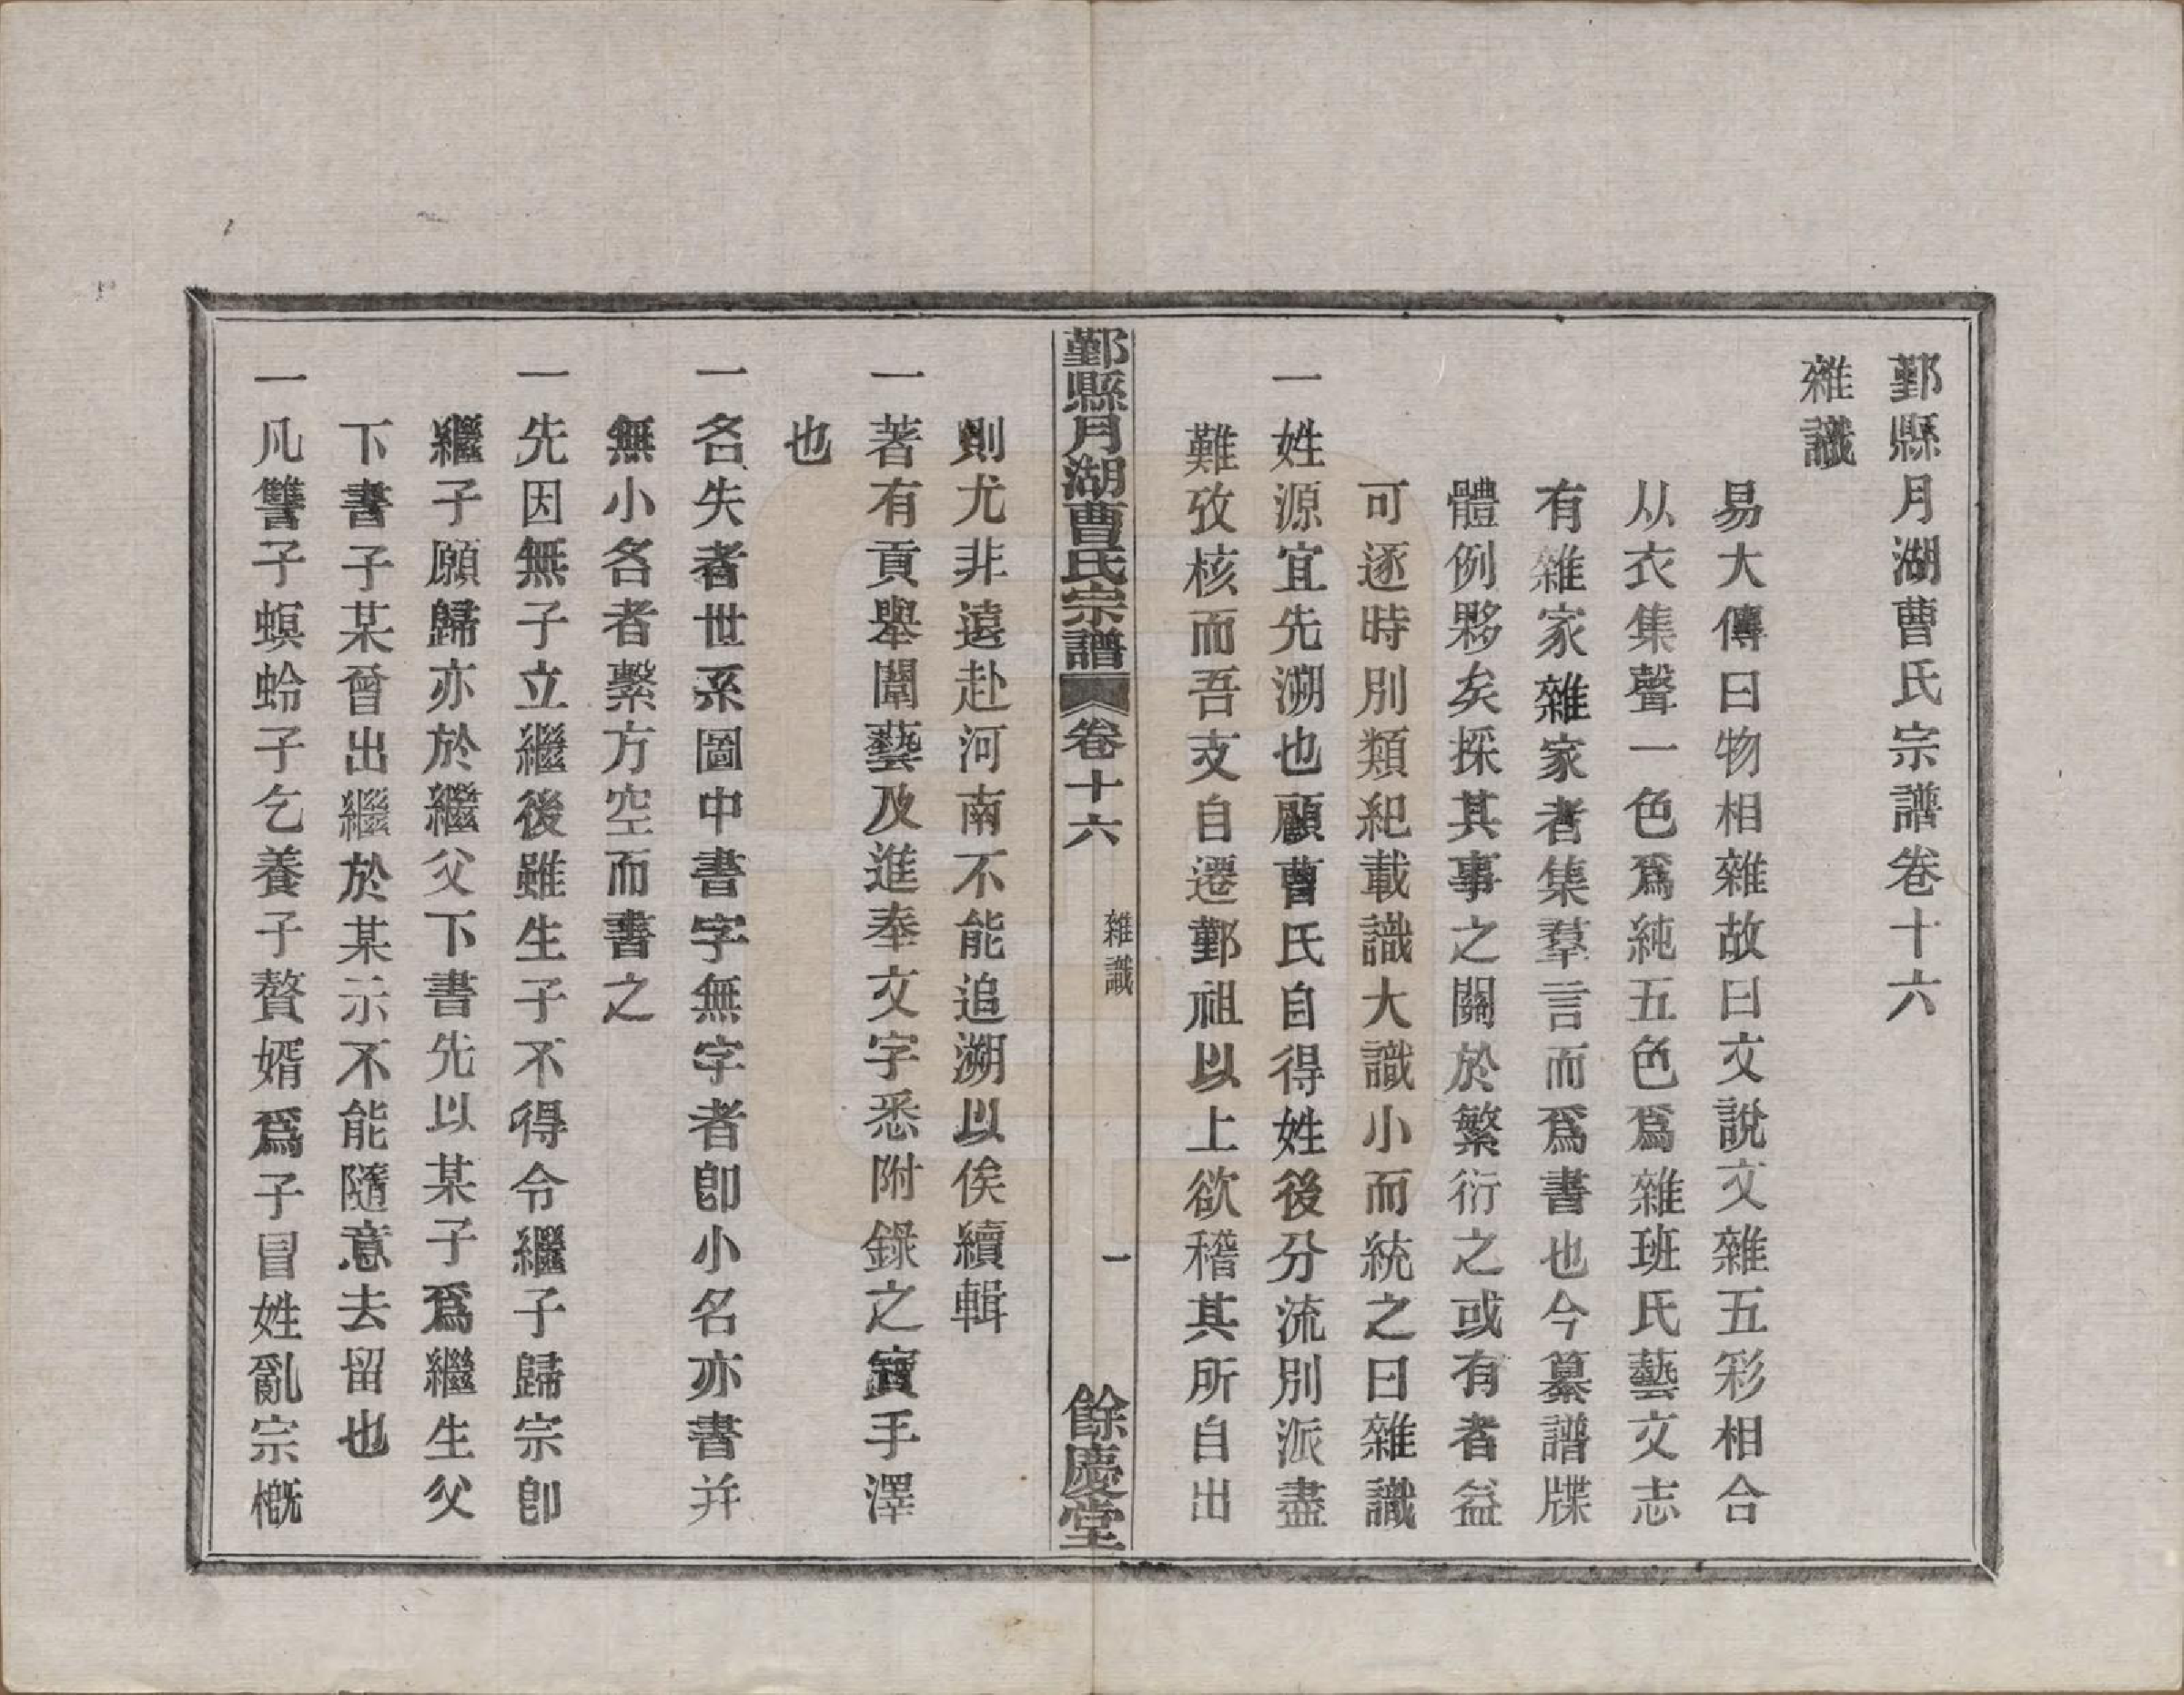 鄞縣月湖曹氏宗譜卷十六
雜識
易大傳曰物相雜故曰文說文雜五彩相合
从衣集聲一色爲純五色爲雜班氏藝文志
有雜家雜家者集羣言而爲書也今纂譜牒
體例夥矣採其事之關於繁衍之或有者益
可逐時別類紀載識大識小而統之曰雜識
一姓源宜先溯也顧曹氏自得姓後分流別派盡
難攷核而吾支自遷鄞祖以上欲稽其所自出
鄞縣月湖曹氏宗譜 卷十六 雜識 一 餘慶堂
則尤非遠赴河南不能追溯以俟續輯
一著有貢舉闈藝及進奉文字悉附錄之寶手澤
也
一名失者世系圖中書字無字者卽小名亦書并
無小名者繫方空而書之
一先因無子立繼後雖生子不得令繼子歸宗卽
繼子願歸亦於繼父下書先以某子爲繼生父
下書子某曾出繼於某示不能隨意去留也
一凡讐子螟蛉子乞養子贅婿爲子冒姓亂宗槪